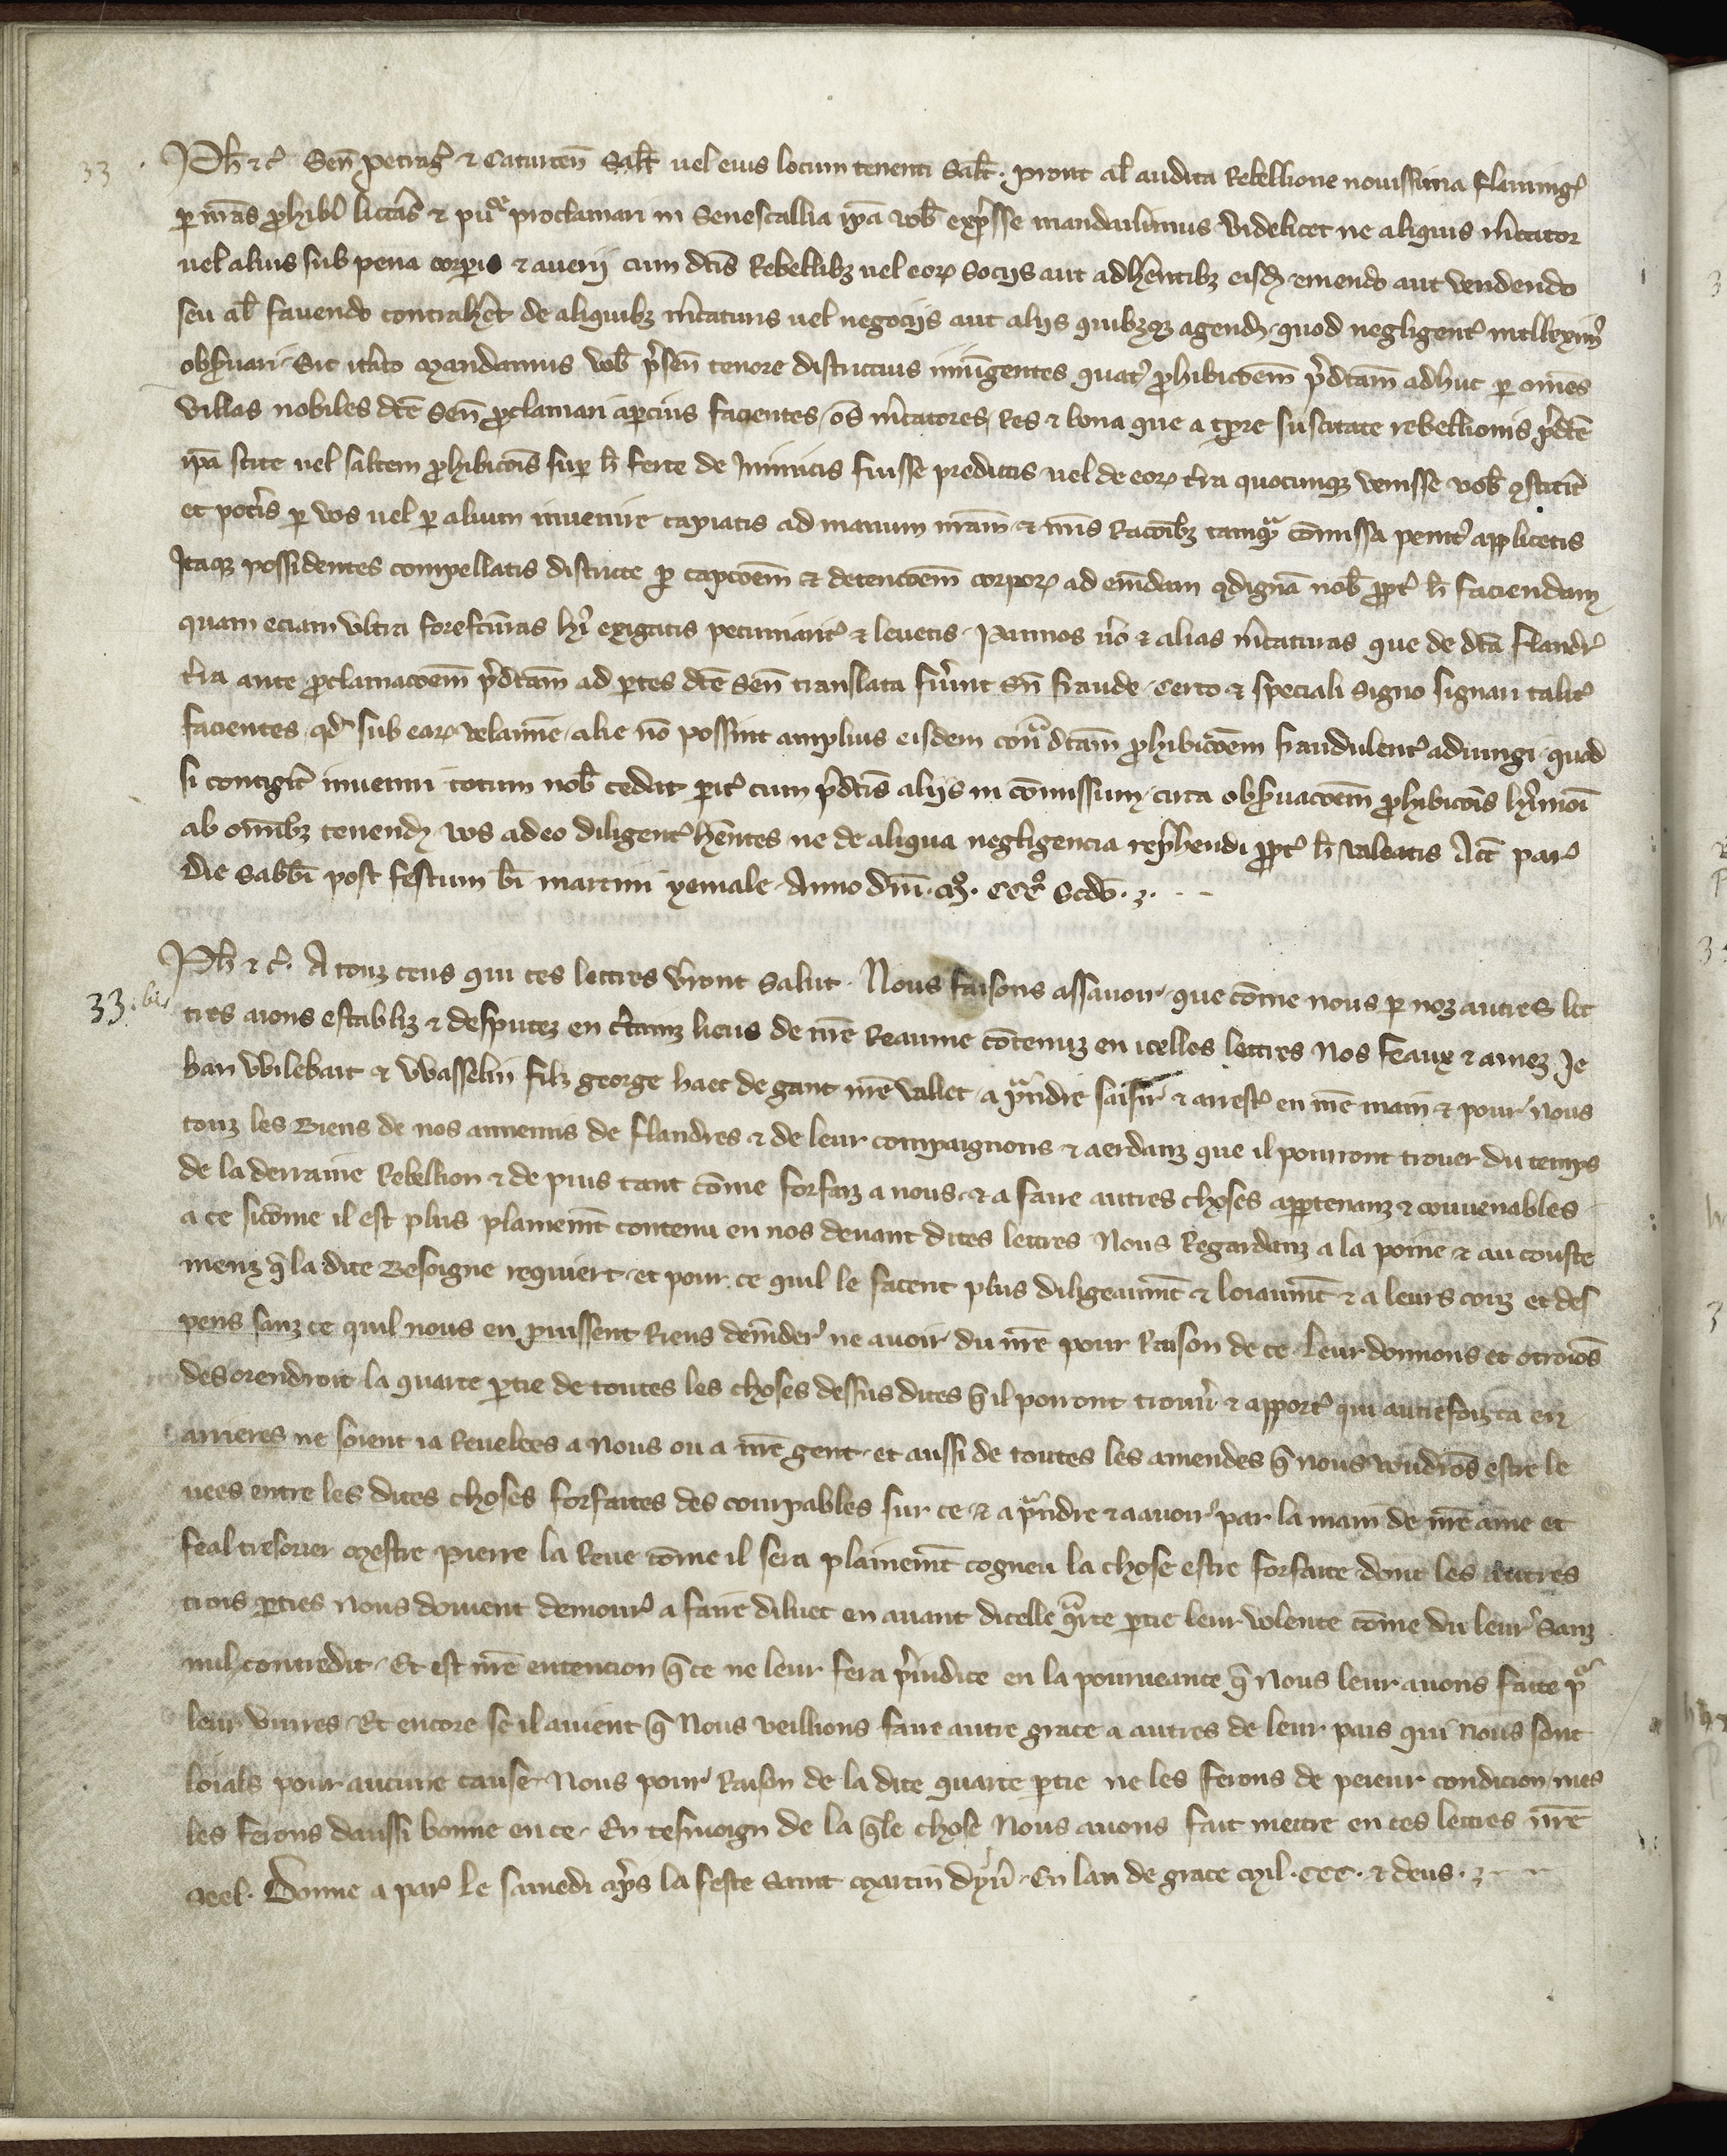 33 . Ph̄ ⁊ c̉ Sen̄ petrag̉ ⁊ Caturcen̄ Sal̄t vel eius locum tenenti Sal̄t. prout al̄ audita Rebellione nouissima flaming̉
per n̄ras prohib̄ litt̄as ⁊ pluries proclamari in Senescallia ip̄a vob̄ exp̄sse mandauimus videlicet ne aliquis m̄cator
vel alius sub pena corporis ⁊ auerij cum dc̄is Rebellibꝫ vel eoꝝ Socijs aut adh̄entibꝫ eisdꝫ emendo aut vendendo
seu al̄ fauendo contrah̄et de aliquibꝫ m̄caturis vel negocijs aut alijs quibꝫcūqꝫ agendꝫ quod negligent̉ intelleximꝰ
obseruari. Sic itato mandamus vob̄ p̄sen̄ tenore districtius iniūgentes quat̉ prohibicōem p̄dc̄am adhuc per om̄es
villas nobiles dc̄e Sen̄ proclamari apercius facientes, om̄s m̄catores, Res ⁊ bona que a tp̄re suscitate rebellionis p̄dc̄e
ip̄a scite vel saltem prohibicōis super h̄ fcē de Inimicis fuisse predictis vel de eoꝝ t̄ra quocunqꝫ venisse vob̄ ꝯstit̄it
et pot̄is per vos vel per alium inuenire capiatis ad manum n̄ram ⁊ n̄ris Racōibꝫ tamqᵃ com̄issa penit̉ applicetis
Itaqꝫ possidentes compellatis districte per capcōem ⁊ detencōem corpoꝝ ad em̄dam ꝯdignā nob̄ prop̄t h̄ faciendam
quam eciam vltra forefc̄uras hꝰ exigatis pecuniarit̉ ⁊ leuetis. Pannos v̄o ⁊ alias m̄caturas que de dc̄a Flandr̉
t̄ra ante proclamacōem p̄dc̄am ad partes dc̄e Sen̄ translata fu̾int sn̄ fraude, certo ⁊ speciali signo signari talit̉
facientes qd̉ sub eaꝝ velamine, alie nō possint amplius eisdem contᵃ dc̄am prohibicōem fraudulent̉ adiungi, quod
si contig̉it inueniri totum nob̄ cedat parit̉ cum p̄dc̄is alijs in com̄issum, circa obseruacōem prohibicōis hꝰmōi
ab om̄ibꝫ tenendꝫ vos adeo diligent̉ h̄entes ne de aliqua negligencia repr̄hendi prop̄t h̄ valeatis Act̄ par̉
die Sabbī post festum bī martini yemale. Anno dn̄i. mᵒ. CCCᵒ Scdō. ꝫ. . . –
33. bis Ph̄ ⁊ c̉. A touz ceus qui ces lettres v̄ront Salut. Nous faisons assauoir que cōme nous per noz autres let
tres aions establiz ⁊ desputez en c̄tainz lieus de n̄re Reaume contenuz en icelles lettres Nos feaux ⁊ amez Je
han Wilebart ⁊ Wasselin filz george haet de gant n̄re vallet a p̄ndre saisir ⁊ arrest̉ en n̄re main ⁊ pour nous
touz les Biens de nos annemis de flandres ⁊ de leur compaignons ⁊ aerdanz que il pourront trouer du temps
de la derraine Rebellion ⁊ de puis tant cōme forfaiz a nous ⁊ a faire autres choses appertenanz ⁊ couuenables
a ce sicōme il est plus plainemn̄t contenu en nos deuant dites lettres Nous Regardanz a la poine ⁊ au couste
menz q̄ la dite Besoigne requiert. et pour ce quil le facent plus diligeaumn̄t ⁊ loiaumn̄t ⁊ a leurs couz et des
pens sanz ce quil nous en puissent Riens dem̄der̉ ne auoir du n̄re pour Raison de ce. Leur donnons et otroiōs
des orendroit la quarte partie de toutes les choses dessus dites q̄ il porront trouu̾ ⁊ apport̉ qui autrefoiz ca en
arrieres ne soient ia Reuelees a Nous ou a n̄re gent. et aussi de toutes les amendes q̄ nous voudrōs estre le
uees entre les dites choses forfaites des coupables sur ce ⁊ a p̄ndre ⁊ a auoir par la main de n̄re ame et
feal tresorier mestre pierre la Reue cōme il sera plainemn̄t cogneu la chose estre forfaite dont les autres
trois parties nous doiuent demour̉ a faire diluec en auant dicelle qᵃrte partie leur volente cōme du leur Sanz
nul contredit. Et est n̄re entencion q̄ ce ne leur fera p̄iudice en la pourueance q̄ Nous leur auons faite pᵒʳ
leur viures. Et encore se il auient q̄ Nous veillions faire autre grace a autres de leur pais qui Nous sont
loials pour aucune cause. Nous pour Raison de la dite quarte partie ne les ferons de peieur condicion mes
les ferons daussi bonne en ce. En tesmoign de la q̄le chose Nous auons fait mettre en ces lettres n̄re
Seel. Donne a par̉ Le samedi ap̄s la feste saint Martin dyū̉. En lan de grace Mil. CCC. ⁊ deus. ꝫ